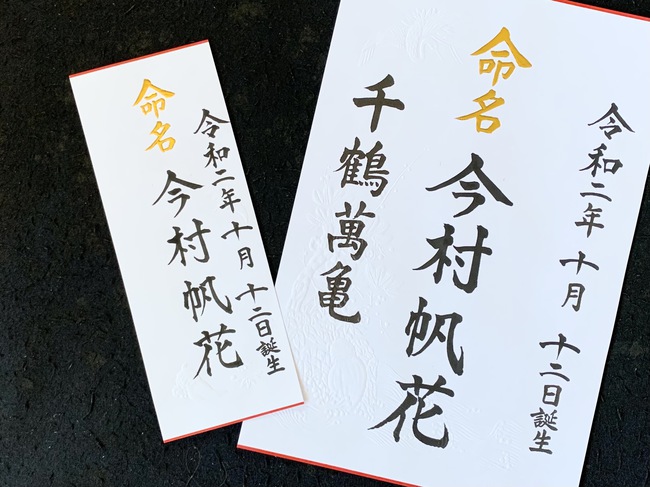 令和二年十月十二日誕生
命名
今村帆花
令和二年十月十二日誕生
命名
今村帆花
千鶴萬亀